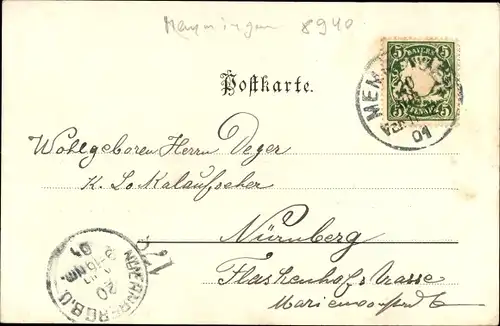 Memmingen 8940
BAYERN
5 5
PFENNIG
MEM
01
Postkarte.
Wohlgeboren Herrn Deger
K. Lokalaufseher
Nürnberg
Flaschenhofstrasse
Marienvorstadt 6
NUERNBERG B.U.
20
01